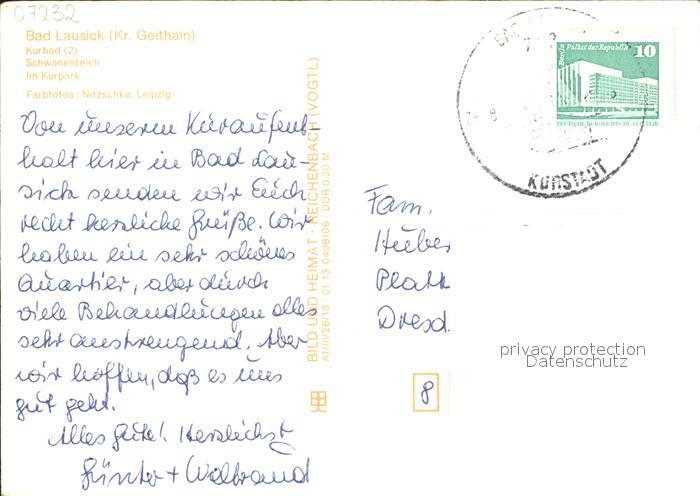 07232
Bad Lausick (Kr. Geithain)
Kurbad (2)
Schwanenteich
Im Kurpark
Farbfotos: Nitzschke, Leipzig
Von unserem Kuraufent-
halt hier in Bad Lau-
sick senden wir Euch
recht herzliche Grüße. Wir
haben ein sehr schönes
Quartier, aber durch
viele Behandlungen alles
sehr anstrengend. Aber
wir hoffen, daß es uns
gut geht.
Alles Gute! Herzlichst
Günter + Waltraud
BILD UND HEIMAT · REICHENBACH (VOGTL)
A1/III/26/13 · 01 13 0498/06 DDR 0,20 M
Berlin Palast der Republik 10
DEUTSCHE DEMOKRATISCHE REPUBLIK
BAD
KURSTADT
Fam.
Huber
Platt
Dresd.
8
privacy protection
Datenschutz